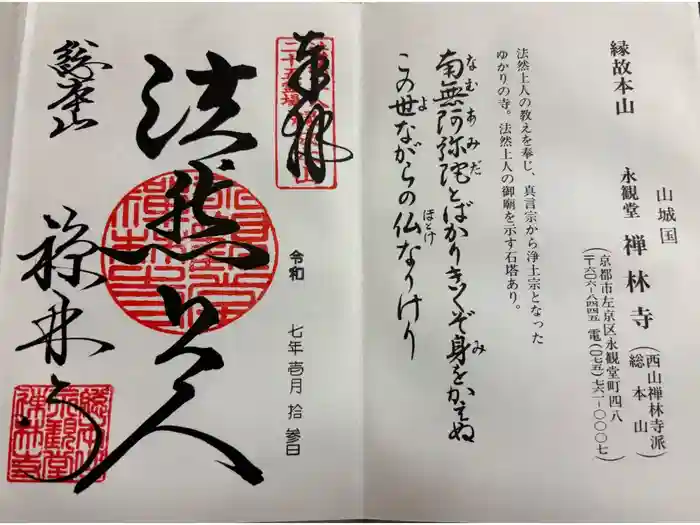 縁故本山
山城国
永観堂 禅林寺(西山禅林寺派 総本山)
(京都市左京区永観堂町四八
〒六〇六-八四四五 電(〇七五)七六一-〇〇〇七)
法然上人の教えを奉じ、真言宗から浄土宗となった
ゆかりの寺。法然上人の御廟を示す石塔あり。
南無阿弥陀とばかりきくぞ身をかねぬ
なむあみだ
み
この世ながらの仏なりけり
よ
ほとけ
奉拝
令和 七年壱月拾参日
法然上人
総本山
禅林寺